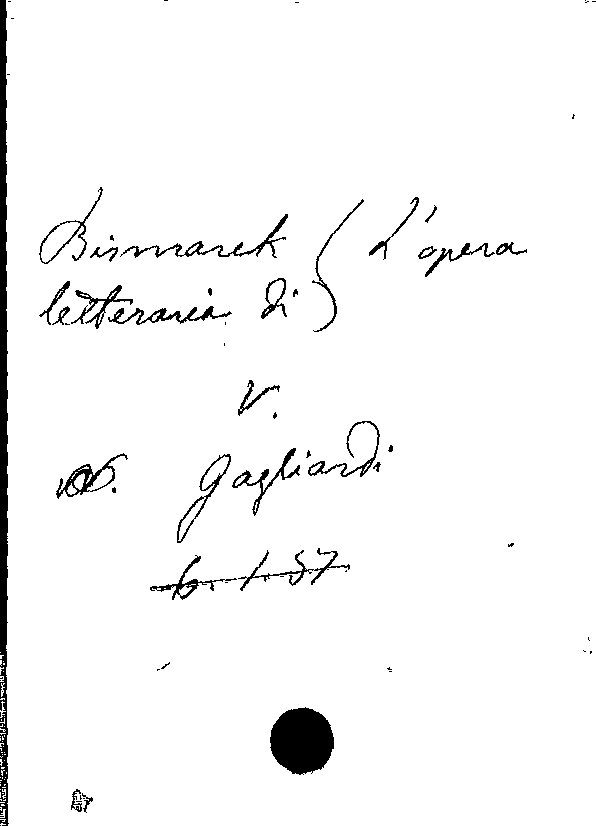 Bismarck (L'opera
letteraria di)
V.
Gagliardi
6. 1. 57